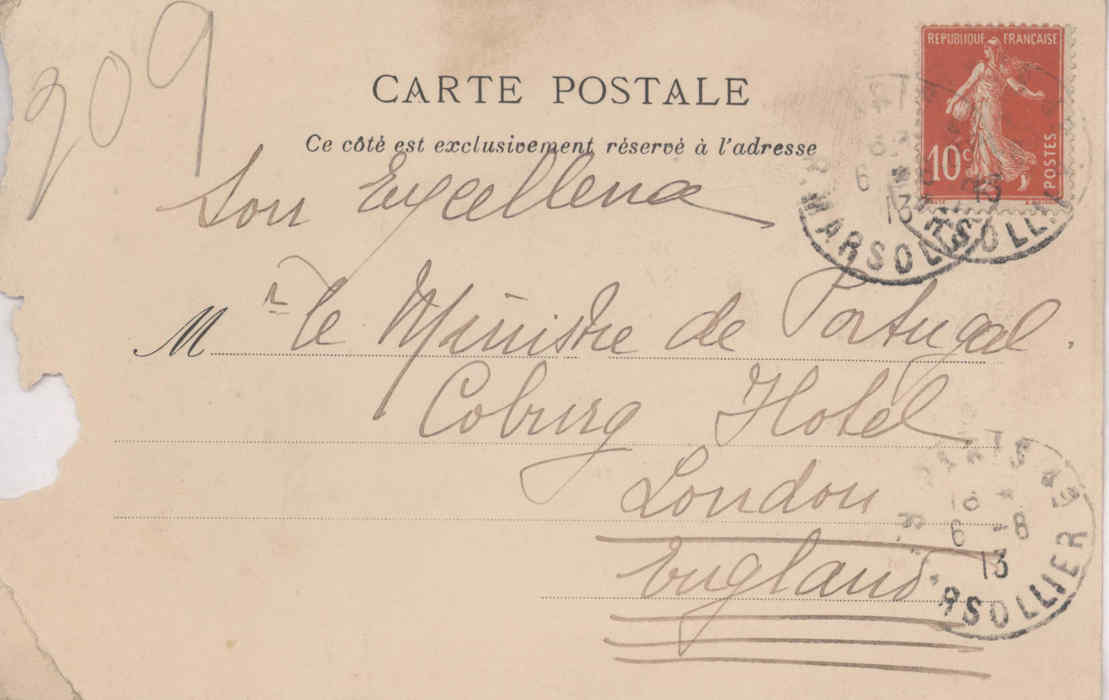 209
REPUBLIQUE FRANÇAISE
10c POSTES
CARTE POSTALE
Ce côté est exclusivement réservé à l'adresse
Son Excellence
Mr le Ministre de Portugal.
Coburg Hotel
London
England
R. MARSOLLIER
6
13
13
PARIS 42
18
6 - 8
13
R. MARSOLLIER